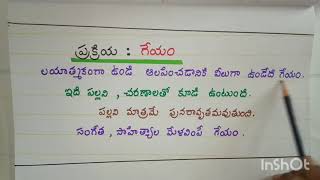 ప్రక్రియ : గేయం
లయాత్మకంగా ఉండి ఆలపించడానికి వీలుగా ఉండేది గేయం.
ఇది పల్లవి , చరణాలతో కూడి ఉంటుంది.
పల్లవి మాత్రమే పునరావృతమవుతుంది.
సంగీత , సాహిత్యాల మేళవింపే గేయం .
InShOt